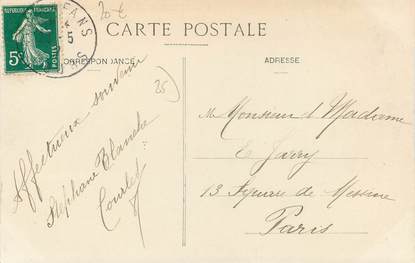 20 €
CARTE POSTALE
REPUBLIQUE FRANÇAISE
5c
POSTES
ANS
5
CORRESPONDANCE
ADRESSE
25
Affectueux souvenir
Stéphane Blanche
M Monsieur & Madame
13 Square de Messine
Paris